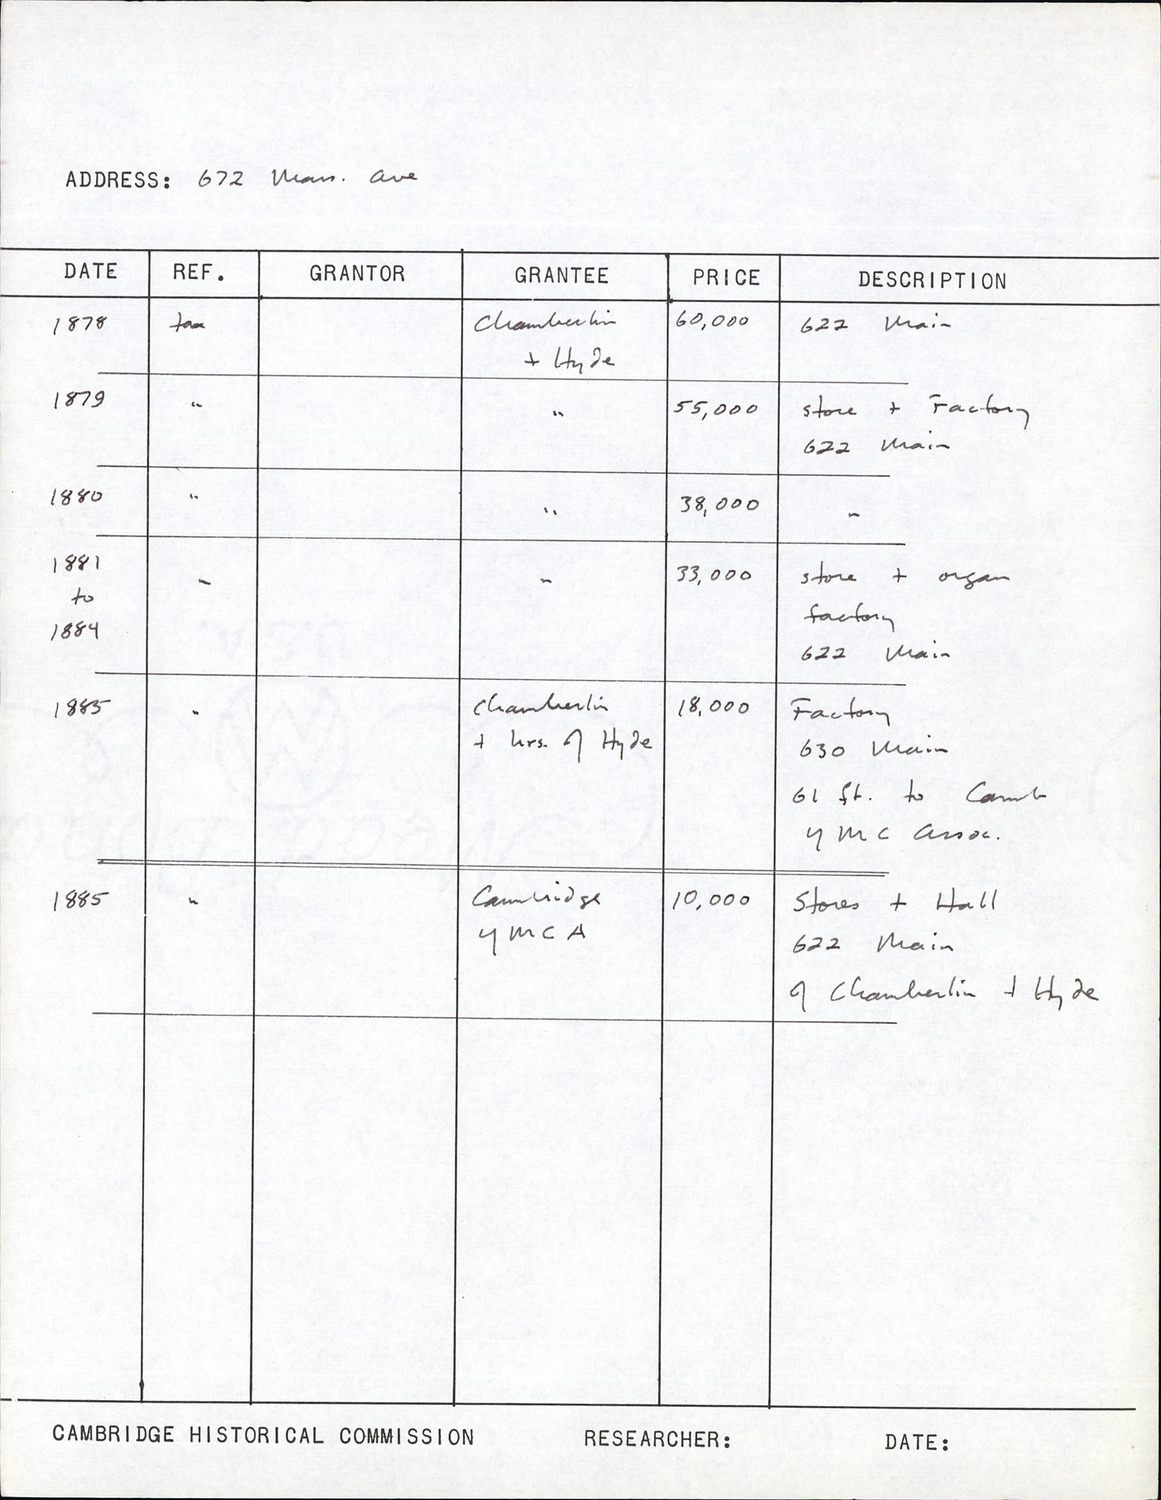 ADDRESS: 672 Mass. Ave
DATE REF. GRANTOR GRANTEE PRICE DESCRIPTION
1878 tax Chamberlin 60,000 622 Main
+ Hyde
1879 " " 55,000 store + Factory
622 Main
1880 " " 38,000 "
1881 " " 33,000 store + organ
to factory
1884 622 Main
1885 " Chamberlin 18,000 Factory
+ hrs. of Hyde 630 Main
61 ft. to Camb
YMC Assoc.
1885 " Cambridge 10,000 Stores + Hall
YMCA 622 Main
of Chamberlin + Hyde
CAMBRIDGE HISTORICAL COMMISSION RESEARCHER: DATE: